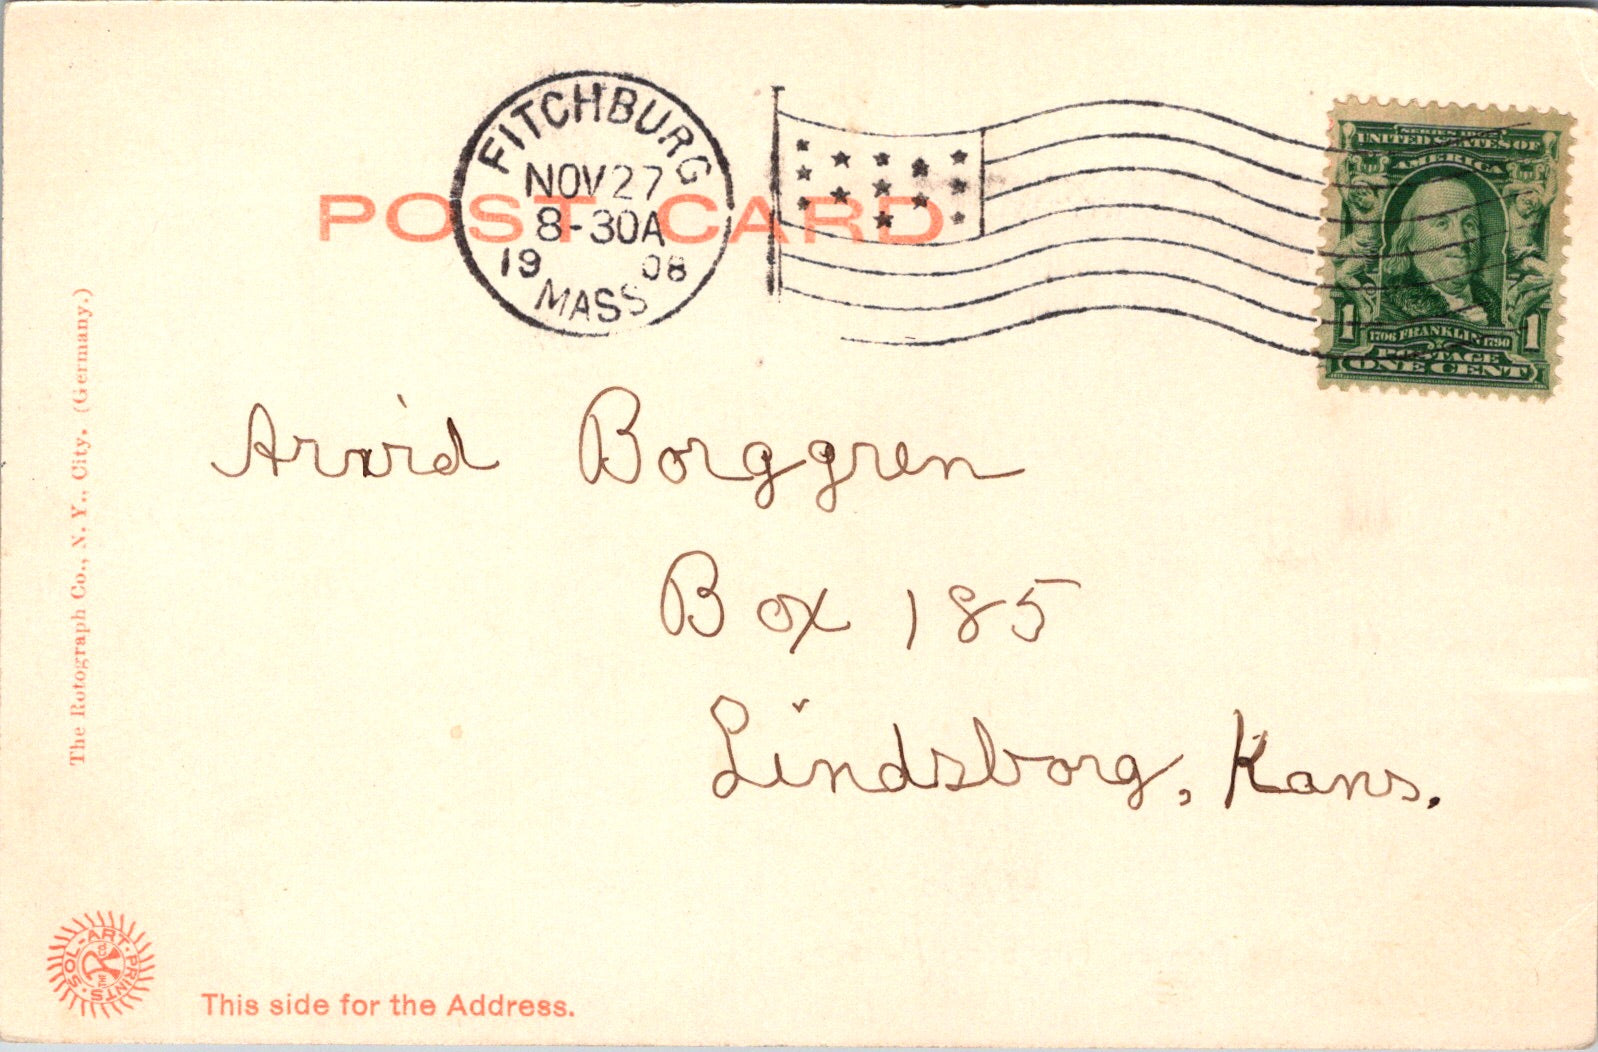 FITCHBURG
NOV 27
8-30A
19 08
MASS
POST CARD
SERIES 1902
UNITED STATES OF
AMERICA
1 1706 FRANKLIN 1790 1
POSTAGE
ONE CENT
Arvid Borggren
Box 185
Lindsborg, Kans.
The Rotograph Co., N. Y., City. (Germany.)
SOL-ART-PRINTS
This side for the Address.